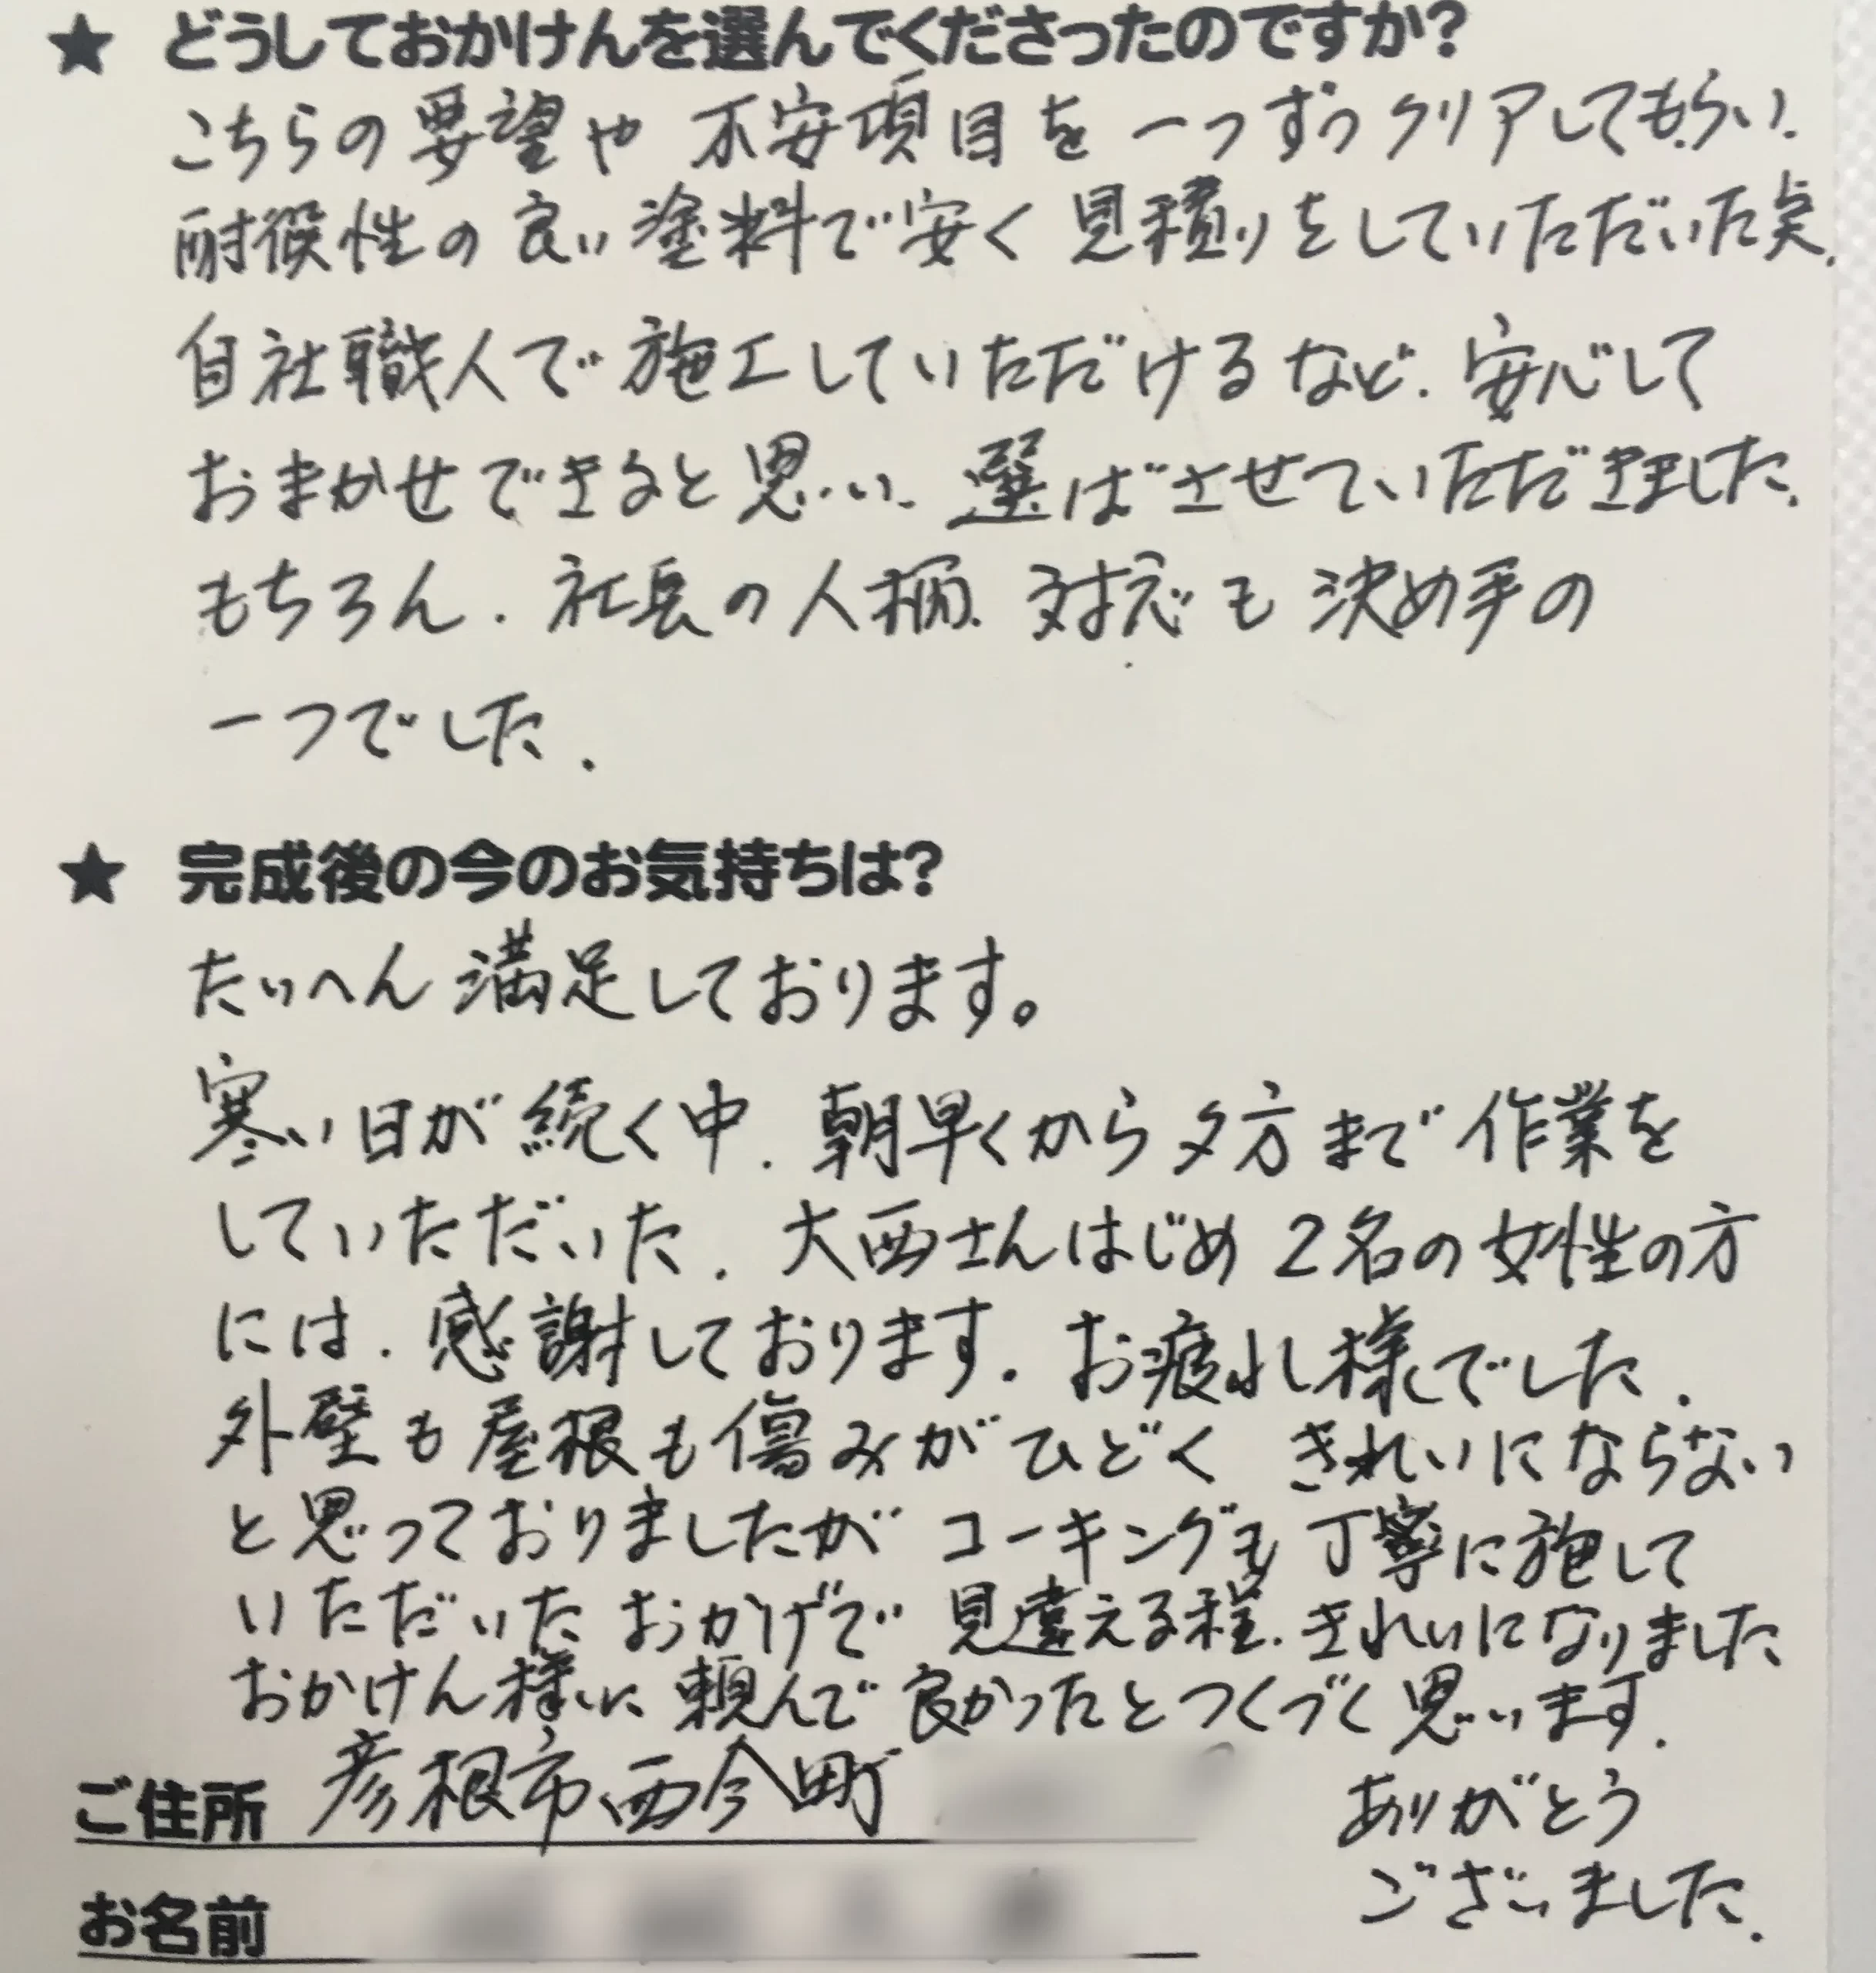 ★ どうしておかけんを選んでくださったのですか?
こちらの要望や不安項目を一つずつクリアしてもらい、
耐候性の良い塗料で安く見積りをしていただいた点、
自社職人で施工していただけるなど、安心して
おまかせできると思い、選ばさせていただきました。
もちろん、社長の人柄、対応も決め手の
一つでした。
★ 完成後の今のお気持ちは?
たいへん満足しております。
寒い日が続く中、朝早くから夕方まで作業を
していただいた、大西さんはじめ2名の女性の方
には、感謝しております。お疲れ様でした。
外壁も屋根も傷みがひどく きれいにならない
と思っておりましたが コーキングも丁寧に施して
いただいたおかげで見違える程、きれいになりました
おかけん様に頼んで良かったとつくづく思います。
ご住所 彦根市西今町
ありがとう
ございました。
お名前